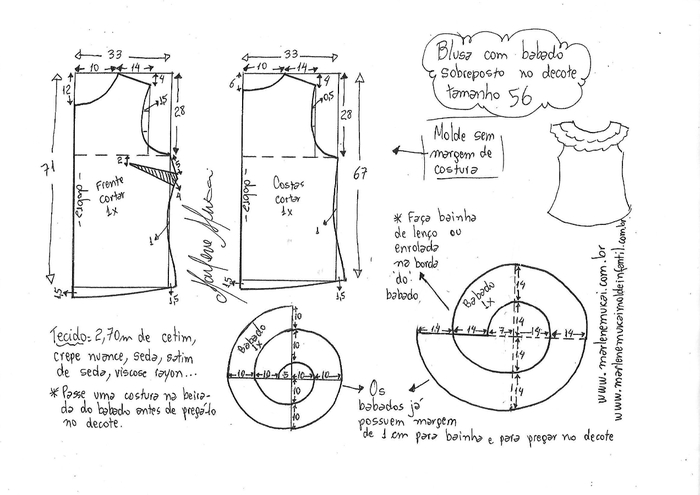 Blusa com babado
sobreposto no decote
tamanho 56
Molde sem
margem de
costura
33
10
14
4
12
1,5
28
71
2
5
4
Frente
cortar
1x
- dobra -
1
1,5
1,5
33
10
14
4
6
0,5
28
67
Costas
cortar
1x
- dobra -
1
1,5
1,5
Marlene Mukai
* Faça bainha
de lenço ou
enrolada
na borda
do
babado
Babado
1x
14
14
14
14
14
14
7
14
14
Tecido: 2,70m de cetim,
crepe nuance, seda, satim
de seda, viscose rayon...
* Passe uma costura na beira-
da do babado antes de pregá-lo
no decote.
Babado
1x
10
10
10
10
5
10
10
10
10
Os
babados já
possuem margem
de 1 cm para bainha e para pregar no decote
www.marlenemukai.com.br
www.marlenemukaimoldeinfantil.com.br